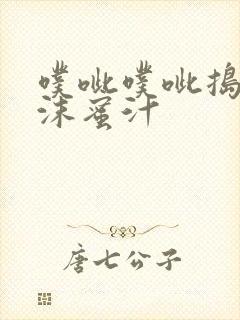 噗呲噗呲搗
沫蜜汁
唐七公子